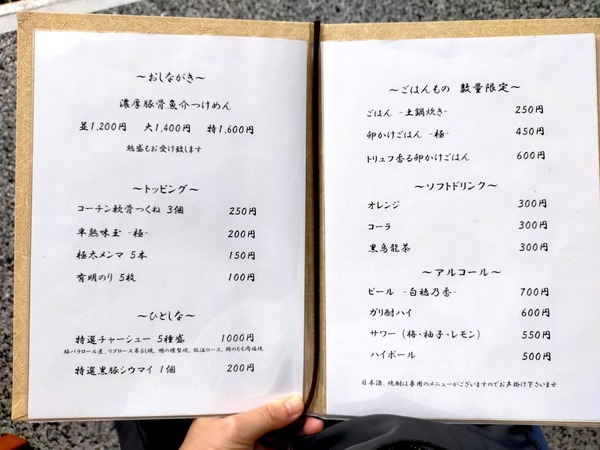 ～おしながき～
濃厚豚骨魚介つけめん
並1,200円 大1,400円 特1,600円
熱盛もお受け致します
～トッピング～
コーチン軟骨つくね 3個 250円
半熟味玉 -極- 200円
極太メンマ 5本 150円
有明のり 5枚 100円
～ひとしな～
特選チャーシュー 5種盛 1000円
豚バラロール煮、リブロース吊るし焼、鴨の燻製焼、低温ロース、鶏のもも肉塩焼
特選黒豚シウマイ 1個 200円
～ごはんもの 数量限定～
ごはん -土鍋炊き- 250円
卵かけごはん -極- 450円
トリュフ香る卵かけごはん 600円
～ソフトドリンク～
オレンジ 300円
コーラ 300円
黒烏龍茶 300円
～アルコール～
ビール -白穂乃香- 700円
ガリ酎ハイ 600円
サワー (梅・柚子・レモン) 550円
ハイボール 500円
日本酒、焼酎は専用のメニューがございますのでお声掛け下さいませ